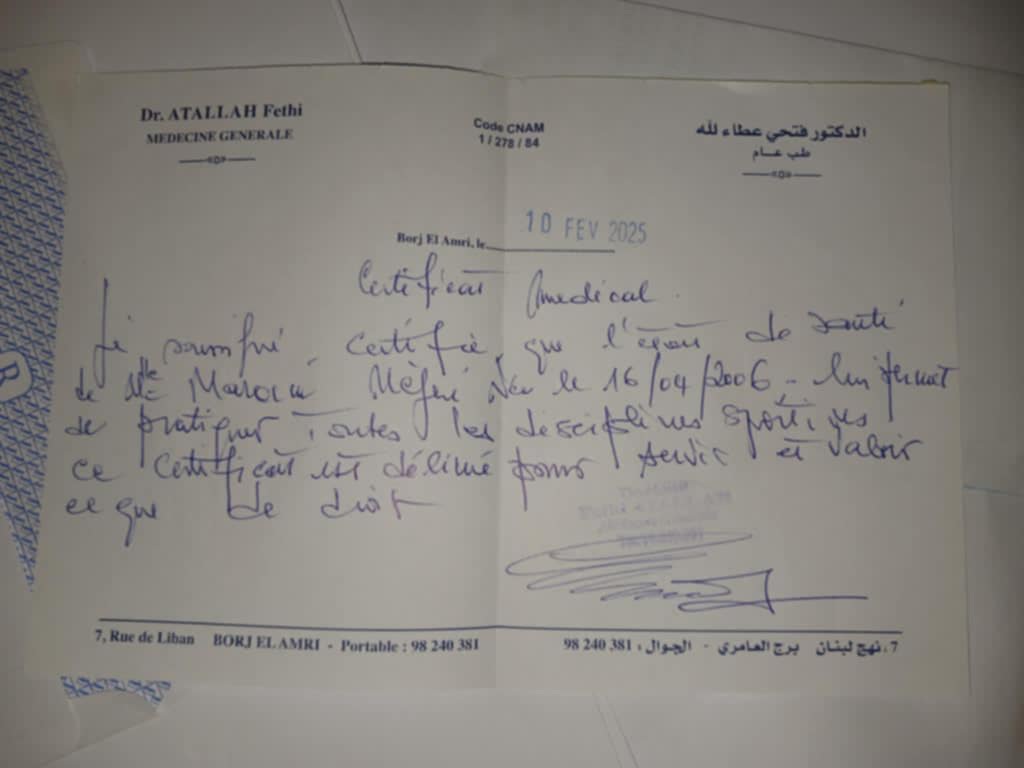 Dr. ATALLAH Fethi
MEDECINE GENERALE
Code CNAM
1 / 278 / 84
الدكتور فتحي عطاء لله
طب عام
Borj El Amri, le 10 FEV 2025
Certificat medical.
Je soussigné certifie que l'état de santé
de Mlle née le 16/04/2006 - lui permet
de pratiquer toutes les disciplines sportives
ce certificat est délivré pour servir et valoir
ce que de droit
7, Rue de Liban BORJ EL AMRI - Portable : 98 240 381
7، نهج لبنان برج العامري - الجوال : 98 240 381